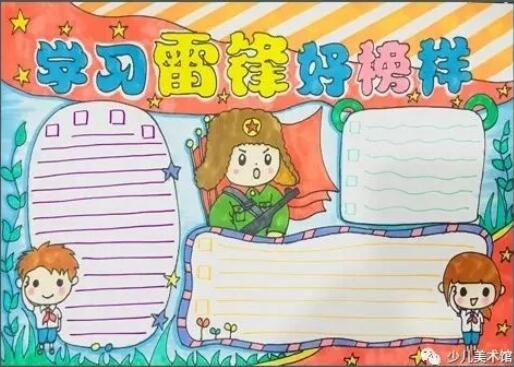 学习雷锋好榜样
少儿美术馆